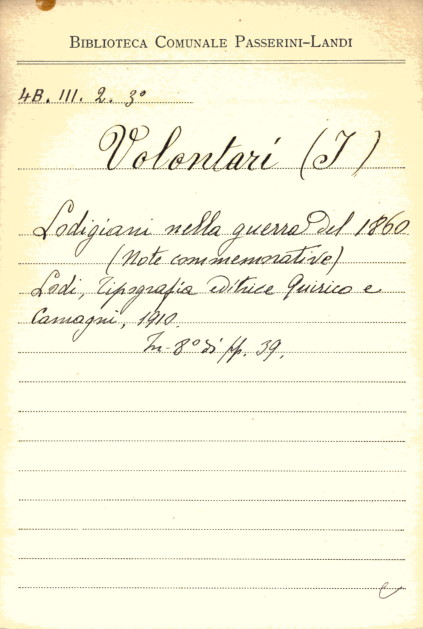 BIBLIOTECA COMUNALE PASSERINI-LANDI
4B. III. 2. 3º
Volontari (I)
Lodigiani nella guerra del 1860
(Note commemorative)
Lodi, Tipografia editrice Quirico e
Camagni, 1910.
In-8º di pp. 39.